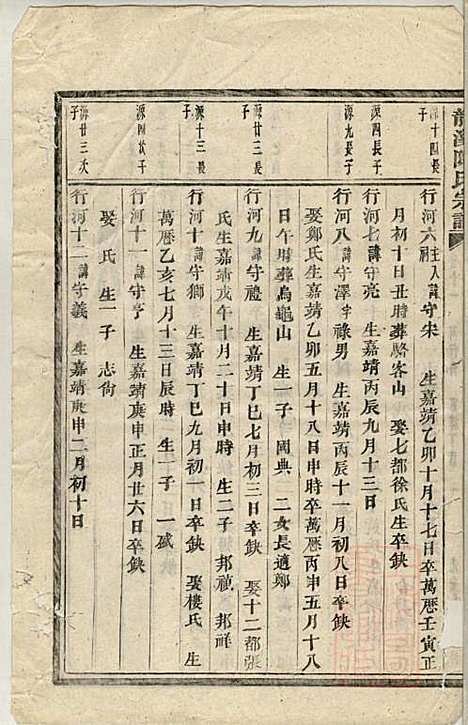 龍溪陳氏宗譜
源十四長子
行河六主人祠諱守宋 生嘉靖乙卯十月十七日卒萬曆壬寅正
月初十日丑時葬駱家山 娶七都徐氏生卒缺
源四長子
行河七諱守亮 生嘉靖丙辰九月十三日
源九長子
行河八諱守澤字祿男 生嘉靖丙辰十一月初八日卒缺
娶鄭氏生嘉靖乙卯五月十八日申時卒萬曆丙申五月十八
日午時葬烏龜山 生一子 國典 二女長適鄭
源廿三長子
行河九諱守禮 生嘉靖丁巳七月初三日卒缺 娶十二都張
氏生嘉靖戊午十月二十日申時 生二子 邦禎 邦祥
源十三長子
行河十諱守獅 生嘉靖丁巳九月初一日卒缺 娶樓氏 生
萬曆乙亥七月十三日辰時 生一子 一盛
源四次子
行河十一諱守亨 生嘉靖庚申正月廿六日卒缺
娶 氏 生一子 志尚
源廿三次子
行河十二諱守義 生嘉靖庚申二月初十日